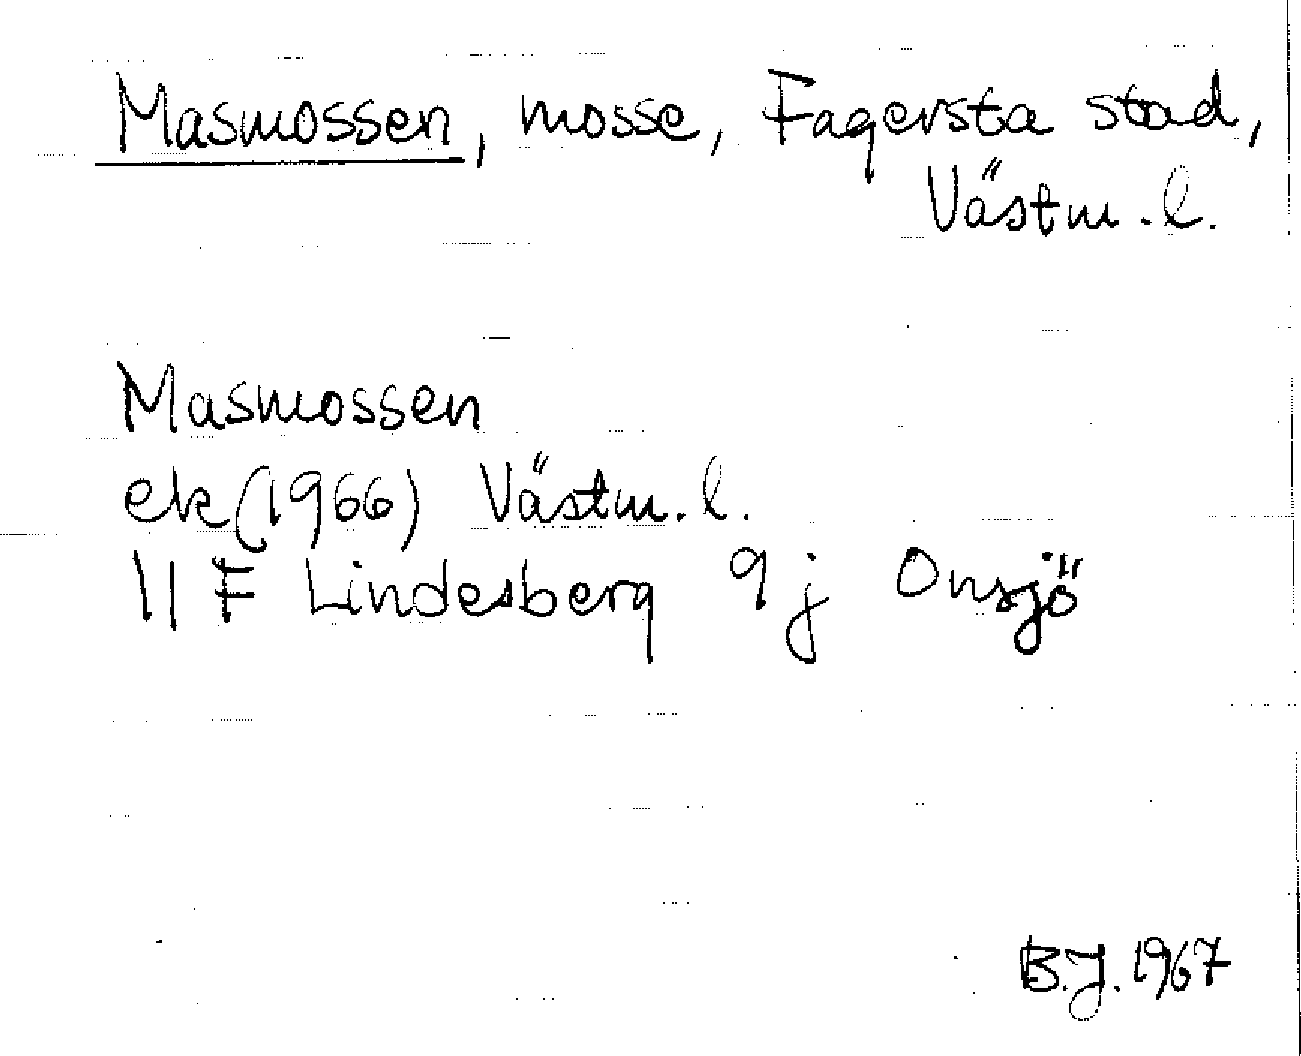 Masmossen, mosse, Fagersta stad,
Västm. l.
Masmossen
ek (1966) Västm. l.
11 F Lindesberg 9 j Onsjö
B.J. 1967